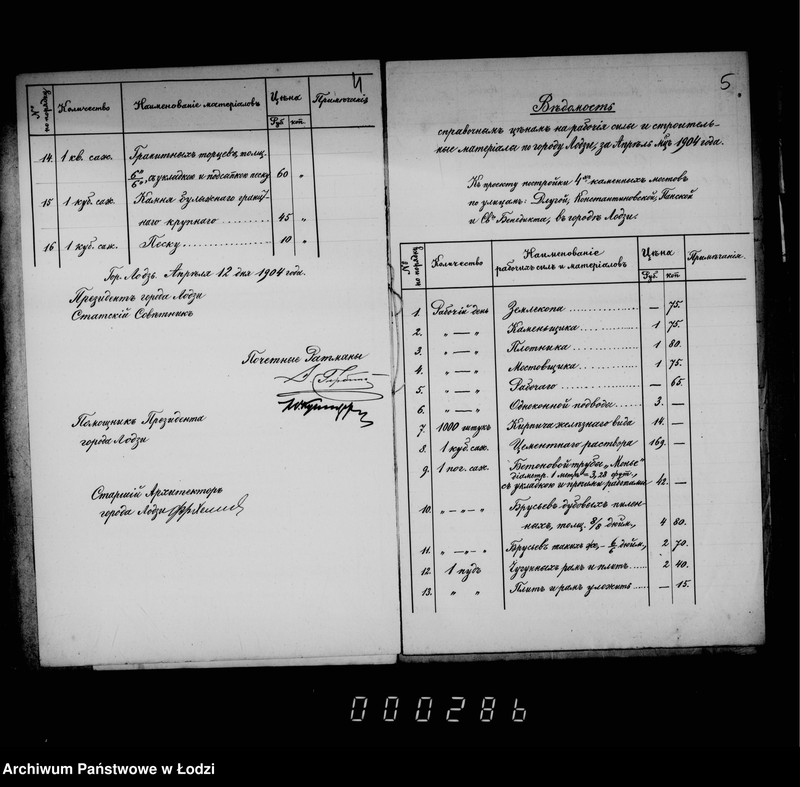 4
№ по порядку Количество Наименованіе матеріаловъ Цѣна Примѣчанія
Руб коп.
14. 1 кв. саж. Гранитныхъ торцевъ, толщ.
6"/6", съ укладкою и подсыпкою песку 60 "
15 1 куб. саж. Камня булыжнаго
наго крупнаго 45 "
16 1 куб. саж. Песку 10 "
Гор. Лодзь. Апрѣля 12 дня 1904 года.
Президентъ города Лодзи
Статскій Совѣтникъ
Почетные Ратманы
Помощникъ Президента
города Лодзи
Старшій Архитекторъ
города Лодзи
5.
Вѣдомость
справочнымъ цѣнамъ на рабочія силы и строитель-
ные матеріалы по городу Лодзи, за Апрѣль мцъ 1904 года.
Къ проекту постройки 4хъ каменныхъ мостовъ
по улицамъ: Длугой, Константиновской, Панской
и Св. Бенедикта, въ городѣ Лодзи.
№ по порядку Количество Наименованіе рабочихъ силъ и матеріаловъ Цѣна Примѣчанія.
Руб. коп
1. Рабочій день Землекопа — 75.
2. " — " Каменьщика 1 75.
3. " — " Плотника 1 80.
4. " — " Мостовщика 1 75.
5. " — " Рабочаго — 65.
6. " — " Одноконной подвода 3. —
7. 1000 штукъ Кирпича желѣзнаго вида 14. —
8. 1 куб. саж. Цементнаго раствора 169. —
9. 1 пог. саж. Бетоновой трубы „Монье"
діаметр. 1 метръ = 3,28 фут.,
съ укладкою и прочими работами 42. —
10. " — " — " Брусьевъ дубовыхъ пилен-
ныхъ, толщ. 8/8 дюйм., 4 80.
11. " — " — " Брусьевъ такихъ же, — 6/6 дюйм., 2 70.
12. 1 пудъ Чугунныхъ рамъ и плитъ 2 40.
13. " " Плитъ и рамъ уложить — 15.
000286
Archiwum Państwowe w Łodzi